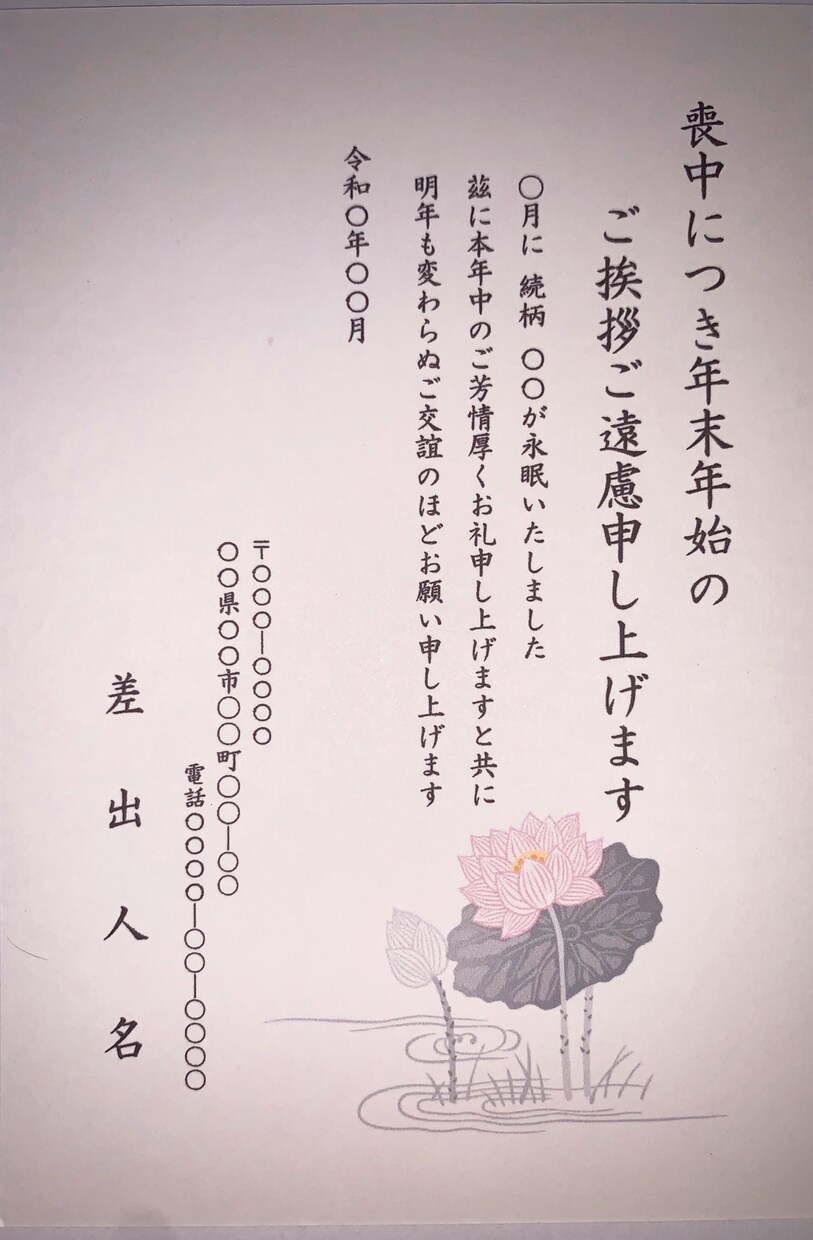 喪中につき年末年始の
ご挨拶ご遠慮申し上げます
〇月に 続柄 〇〇が永眠いたしました
茲に本年中のご芳情厚くお礼申し上げますと共に
明年も変わらぬご交誼のほどお願い申し上げます
令和〇年〇〇月
〒〇〇〇―〇〇〇〇
〇〇県〇〇市〇〇町〇〇―〇〇
電話〇〇〇〇―〇〇―〇〇〇〇
差出人名